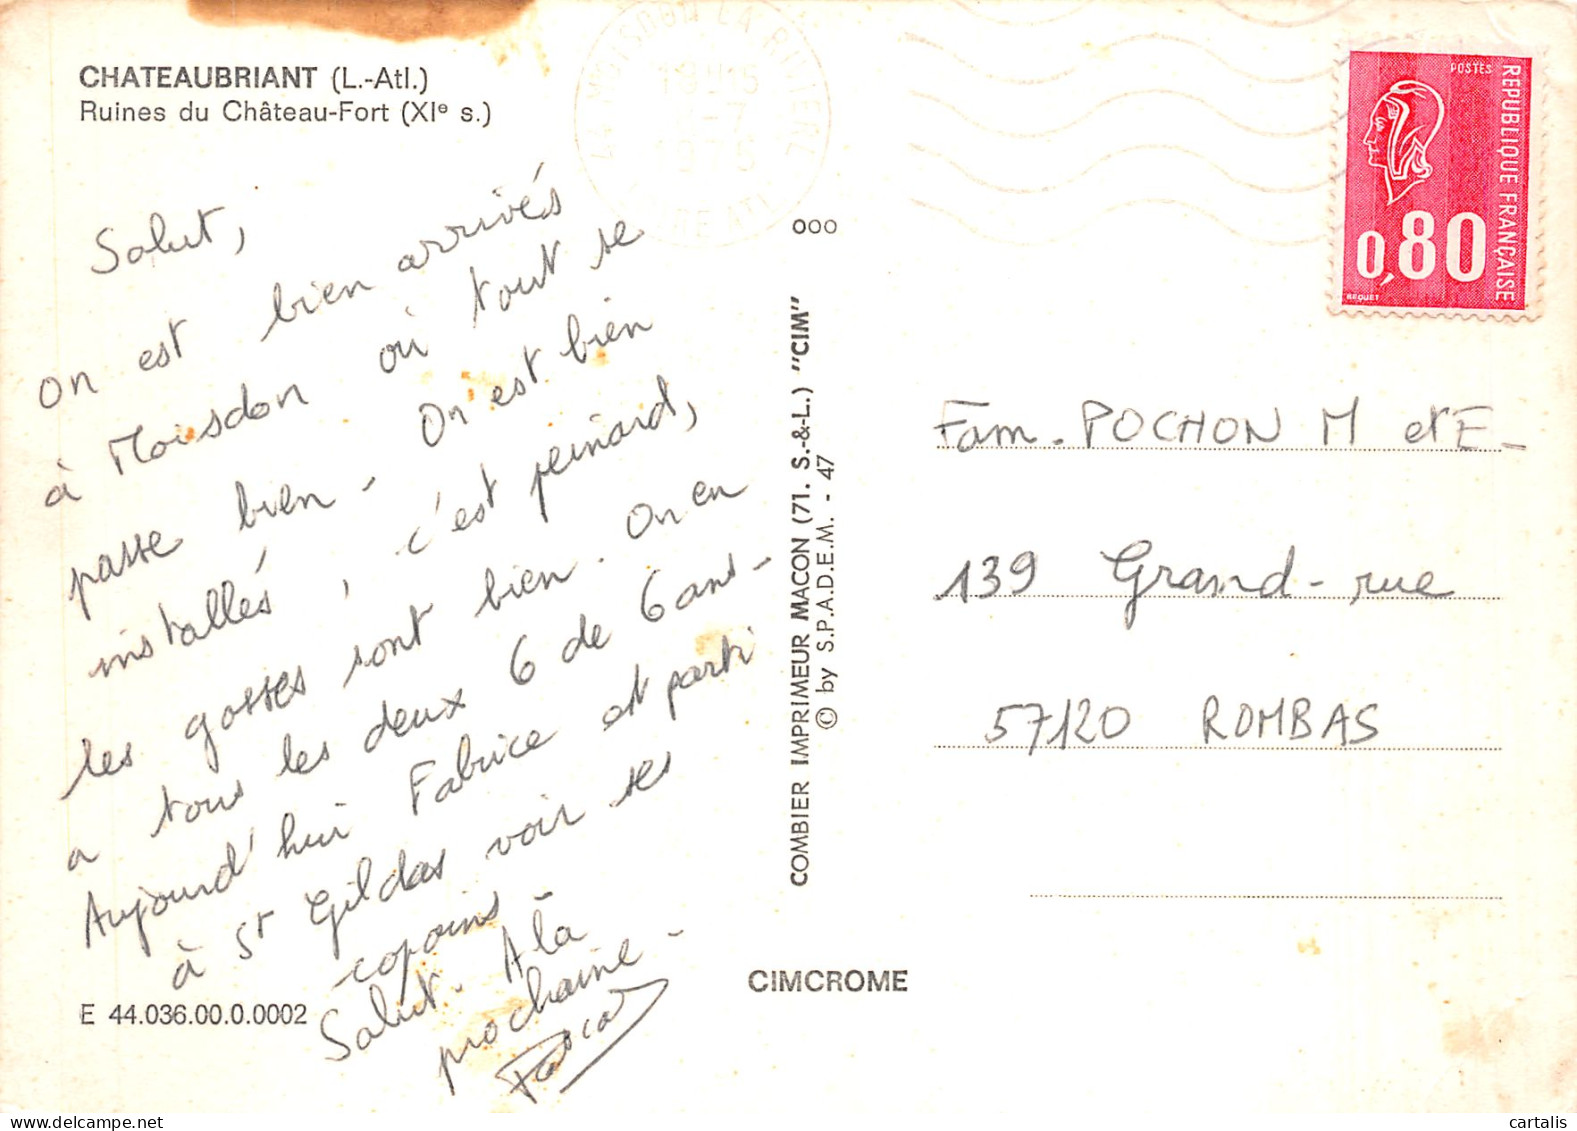 CHATEAUBRIANT (L.-Atl.)
Ruines du Château-Fort (XIe s.)
Salut,
on est bien arrivés
à Moisdon où tout se
passe bien - On est bien
installés, c'est peinard,
les gosses sont bien. On en
a tous les deux 6 de 6 ans -
Aujourd'hui Fabrice est parti
à St Gildas voir ses
copains -
Salut. A la
prochaine -
Pascal
E 44.036.00.0.0002
COMBIER IMPRIMEUR MACON (71. S.-&-L.) "CIM"
© by S.P.A.D.E.M. - 47
CIMCROME
000
MOISDON LA RIVIERE
POSTES
REPUBLIQUE FRANÇAISE
0,80
BEQUET
Fam. POCHON M et E -
139 Grand-rue
57120 ROMBAS
cartalis